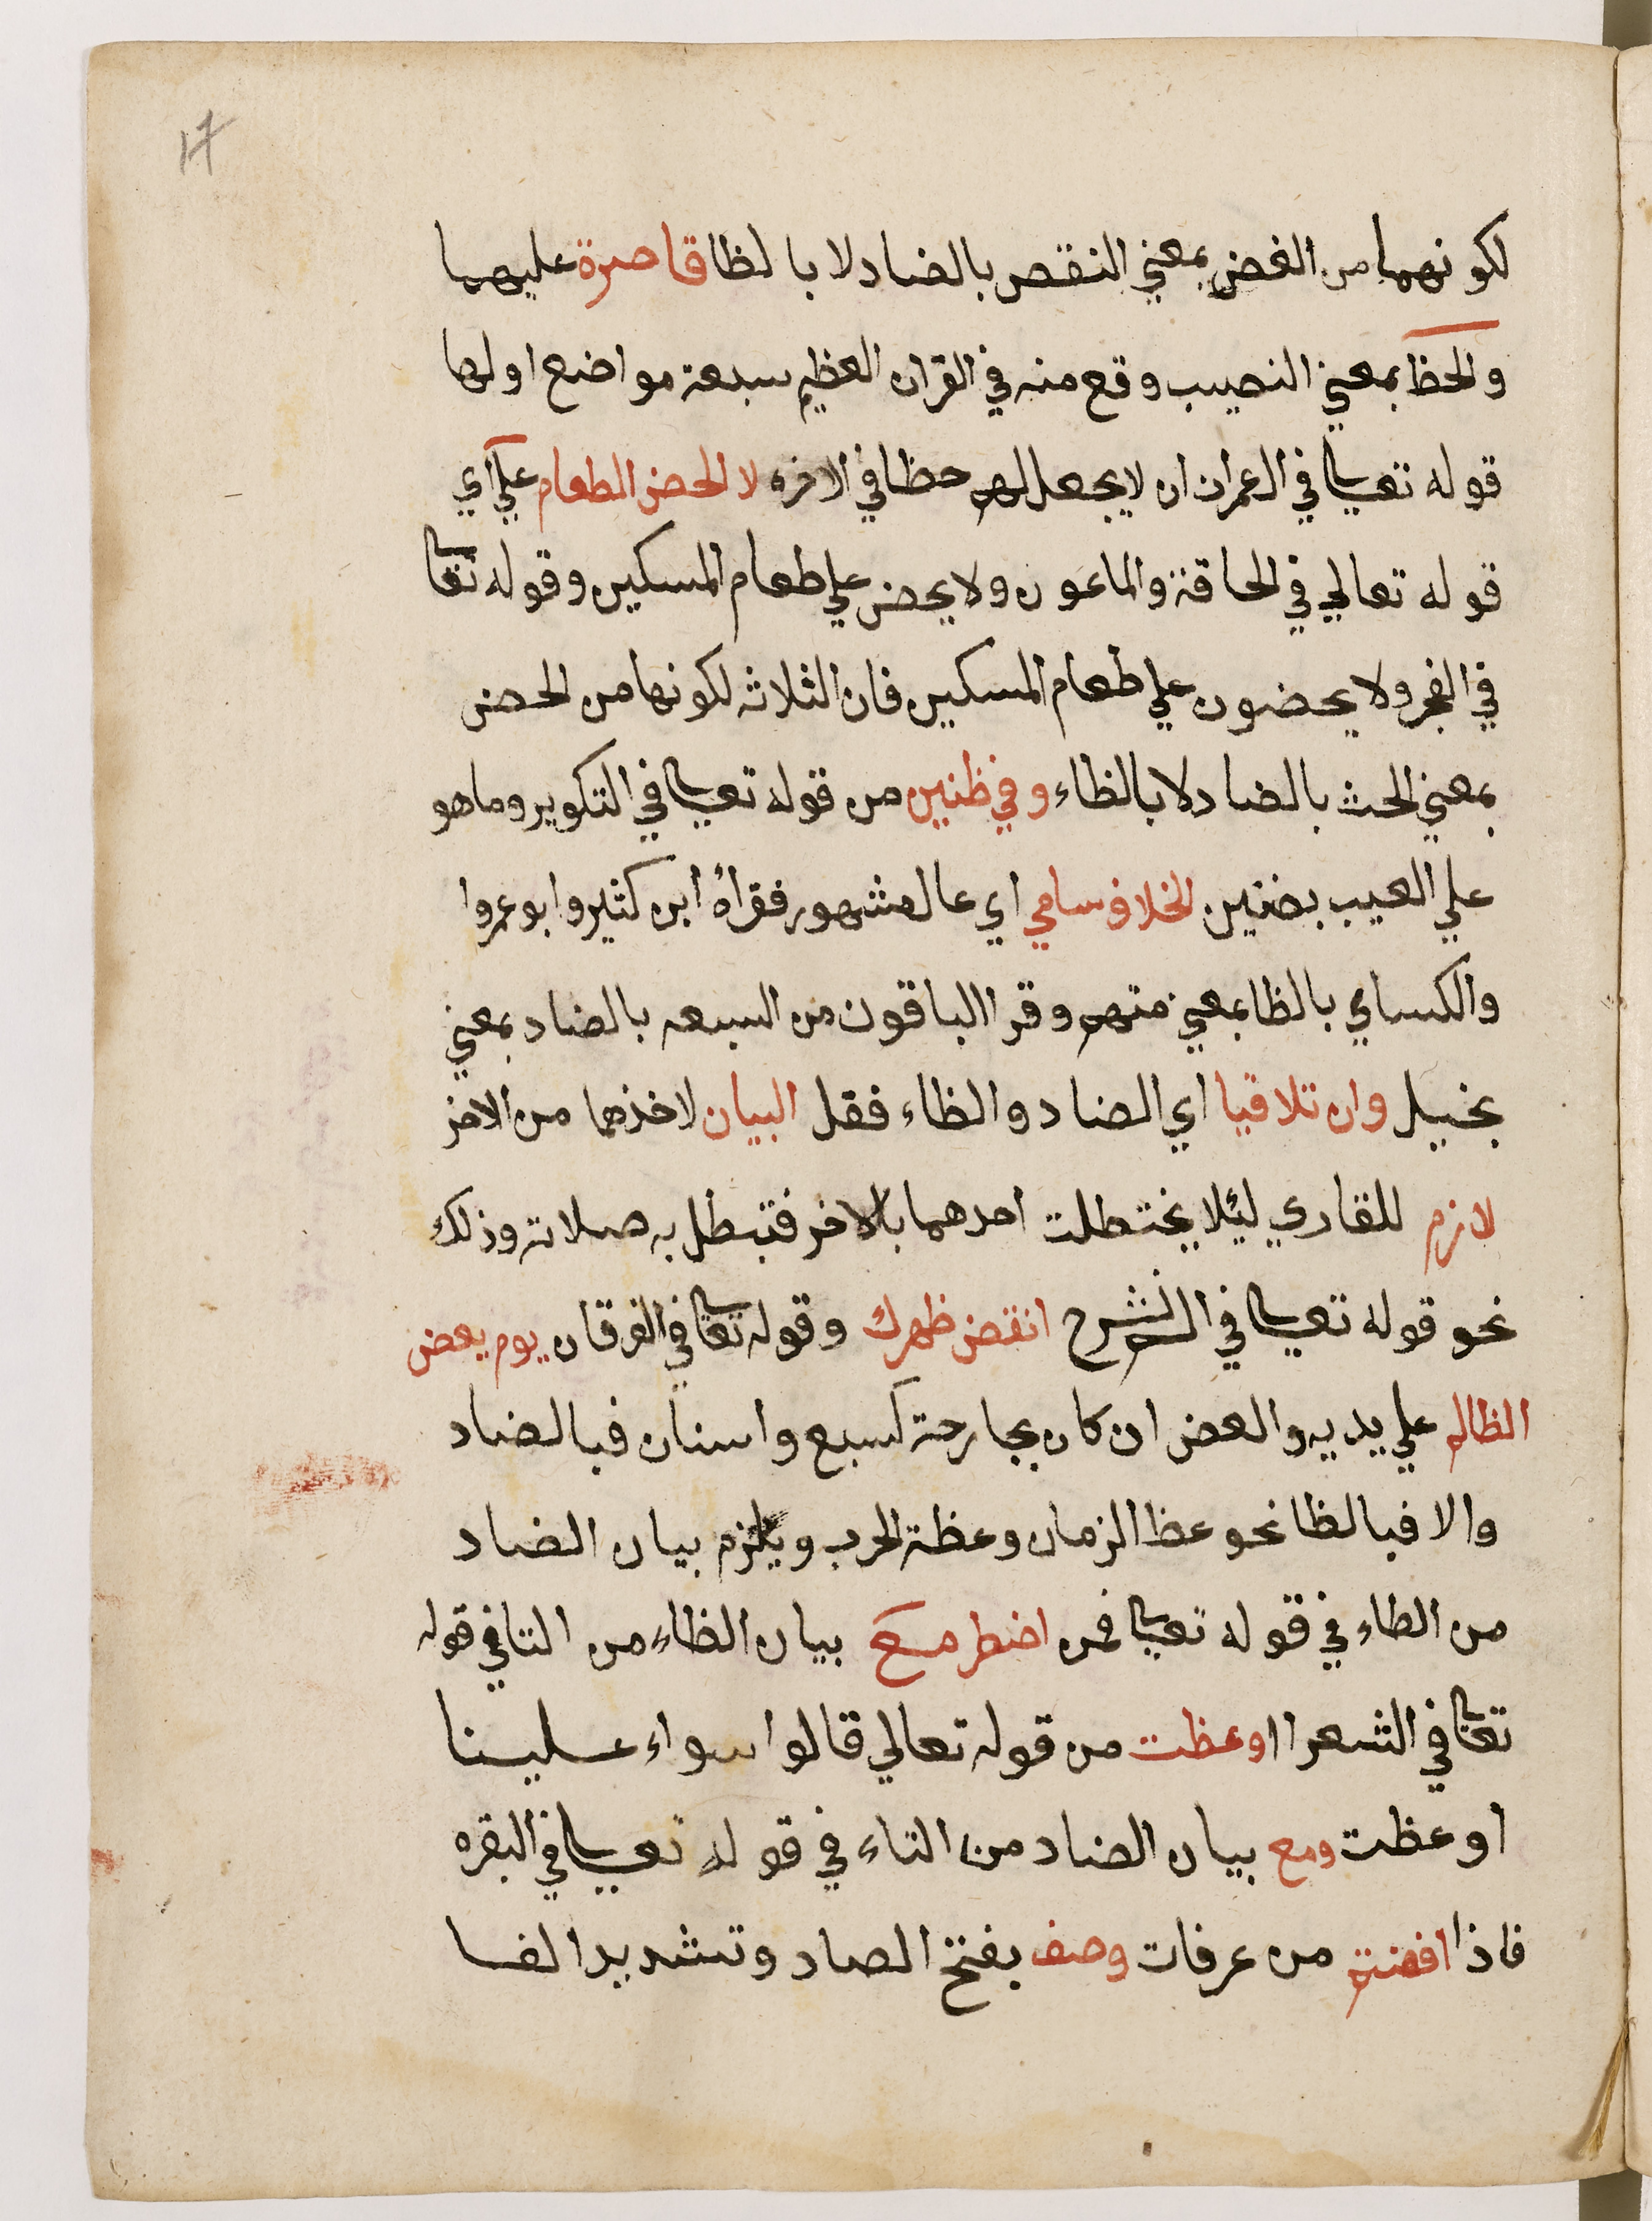 17
لكونهما من الغض بمعني النقص بالضاد لا بالظا قاصرة عليهما
والحظ بمعني النصيب وقع منه في القران العظيم سبعة مواضع اولها
قوله تعالي في ال عمران ان لا يجعل لهم حظا في الاخره لا الحض الطعام علي اي
قوله تعالي في الحاقة والماعون ولا يحض علي طعام المسكين وقوله تعا
في الفجر ولا يحضون علي طعام المسكين فان الثلاثه لكونها من الحض
بمعني الحث بالضاد لا بالظاء وفي ظنين من قوله تعالي في التكوير وما هو
علي الغيب بضنين الخلاف سامي اي عال مشهور فقرأهُ ابن كثير وابو عمروا
والكساي بالظا بمعني متهم وقرا الباقون من السبعه بالضاد بمعني
بخيل وان تلاقيا اي الضاد والظاء فقل البيان لاخذهما من الاخر
لازم للقاري ليئلا يختطلت احدهما بالاخر فتبطل به صلاته وذلك
نحو قوله تعالي في الم نشرح انقض ظهرك وقوله تعا في الفرقان يوم يعض
الظالم علي يديه والعض ان كان بجارحة كسبع واسنان فبالضاد
والا فبالظا نحو عظ الزمان وعظة الحرب ويلزم بيان الضاد
من الطاء في قوله تعالي فمن اضطر مع بيان الظاء من التا في قوله
تعا في الشعرا اوعظت من قوله تعالي قالوا سواء علينا
اوعظت ومع بيان الضاد من التاء في قوله تعالي في البقره
فاذا افضتم من عرفات وصف بفتح الصاد وتشديد الفا